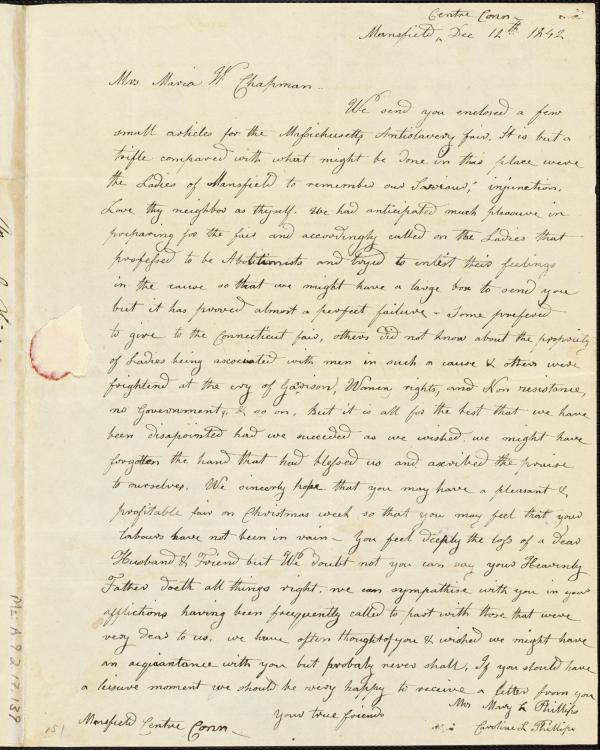 Centre Conn
Mansfield, Dec 12th 1842
Mrs Maria W Chapman -
We send you enclosed a few
small articles for the Massichusetts Antislavery fair. It is but a
trifle compared with what might be done in this place were
the Ladies of Mansfield to remember our Saviour's injunction,
Love thy neighbor as thyself. We had anticipated much pleasure in
preparing for the fair and accordingly called on the Ladies that
professed to be Abolitionists and tryed to enlist their feelings
in the cause so that we might have a large box to send you
but it has proved almost a perfect failure - Some prefered
to give to the Connecticut fair, others did not know about the propriety
of Ladies being asociated with men in such a cause & others were
frightend at the cry of Garrison, Women, rights, and Non resistance,
no Government, & so on. But it is all for the best that we have
been disapointed had we succeeded as we wished we might have
forgotten the hand that had blessed us and ascribed the praise
to ourselves. We sincerly hope that you may have a pleasant &
profitable fair on Christmas week so that you may feel that your
labours have not been in vain - You feel deeply the loss of a dear
Husband & Friend but We doubt not you can say your Heavenly
Father doeth all things right. we can sympathise with you in your
afflictions having been frequently called to part with those that were
very dear to us. we have often thought of you & wished we might have
an aquaintance with you but probaly never shall. If you should have
a leisure moment we should be very happy to receive a letter from you
Your true friends
Mrs Mary L Phillips
Caroline L Phillips
Mansfield Centre Conn -
151
Ms. A 9.2.17.139